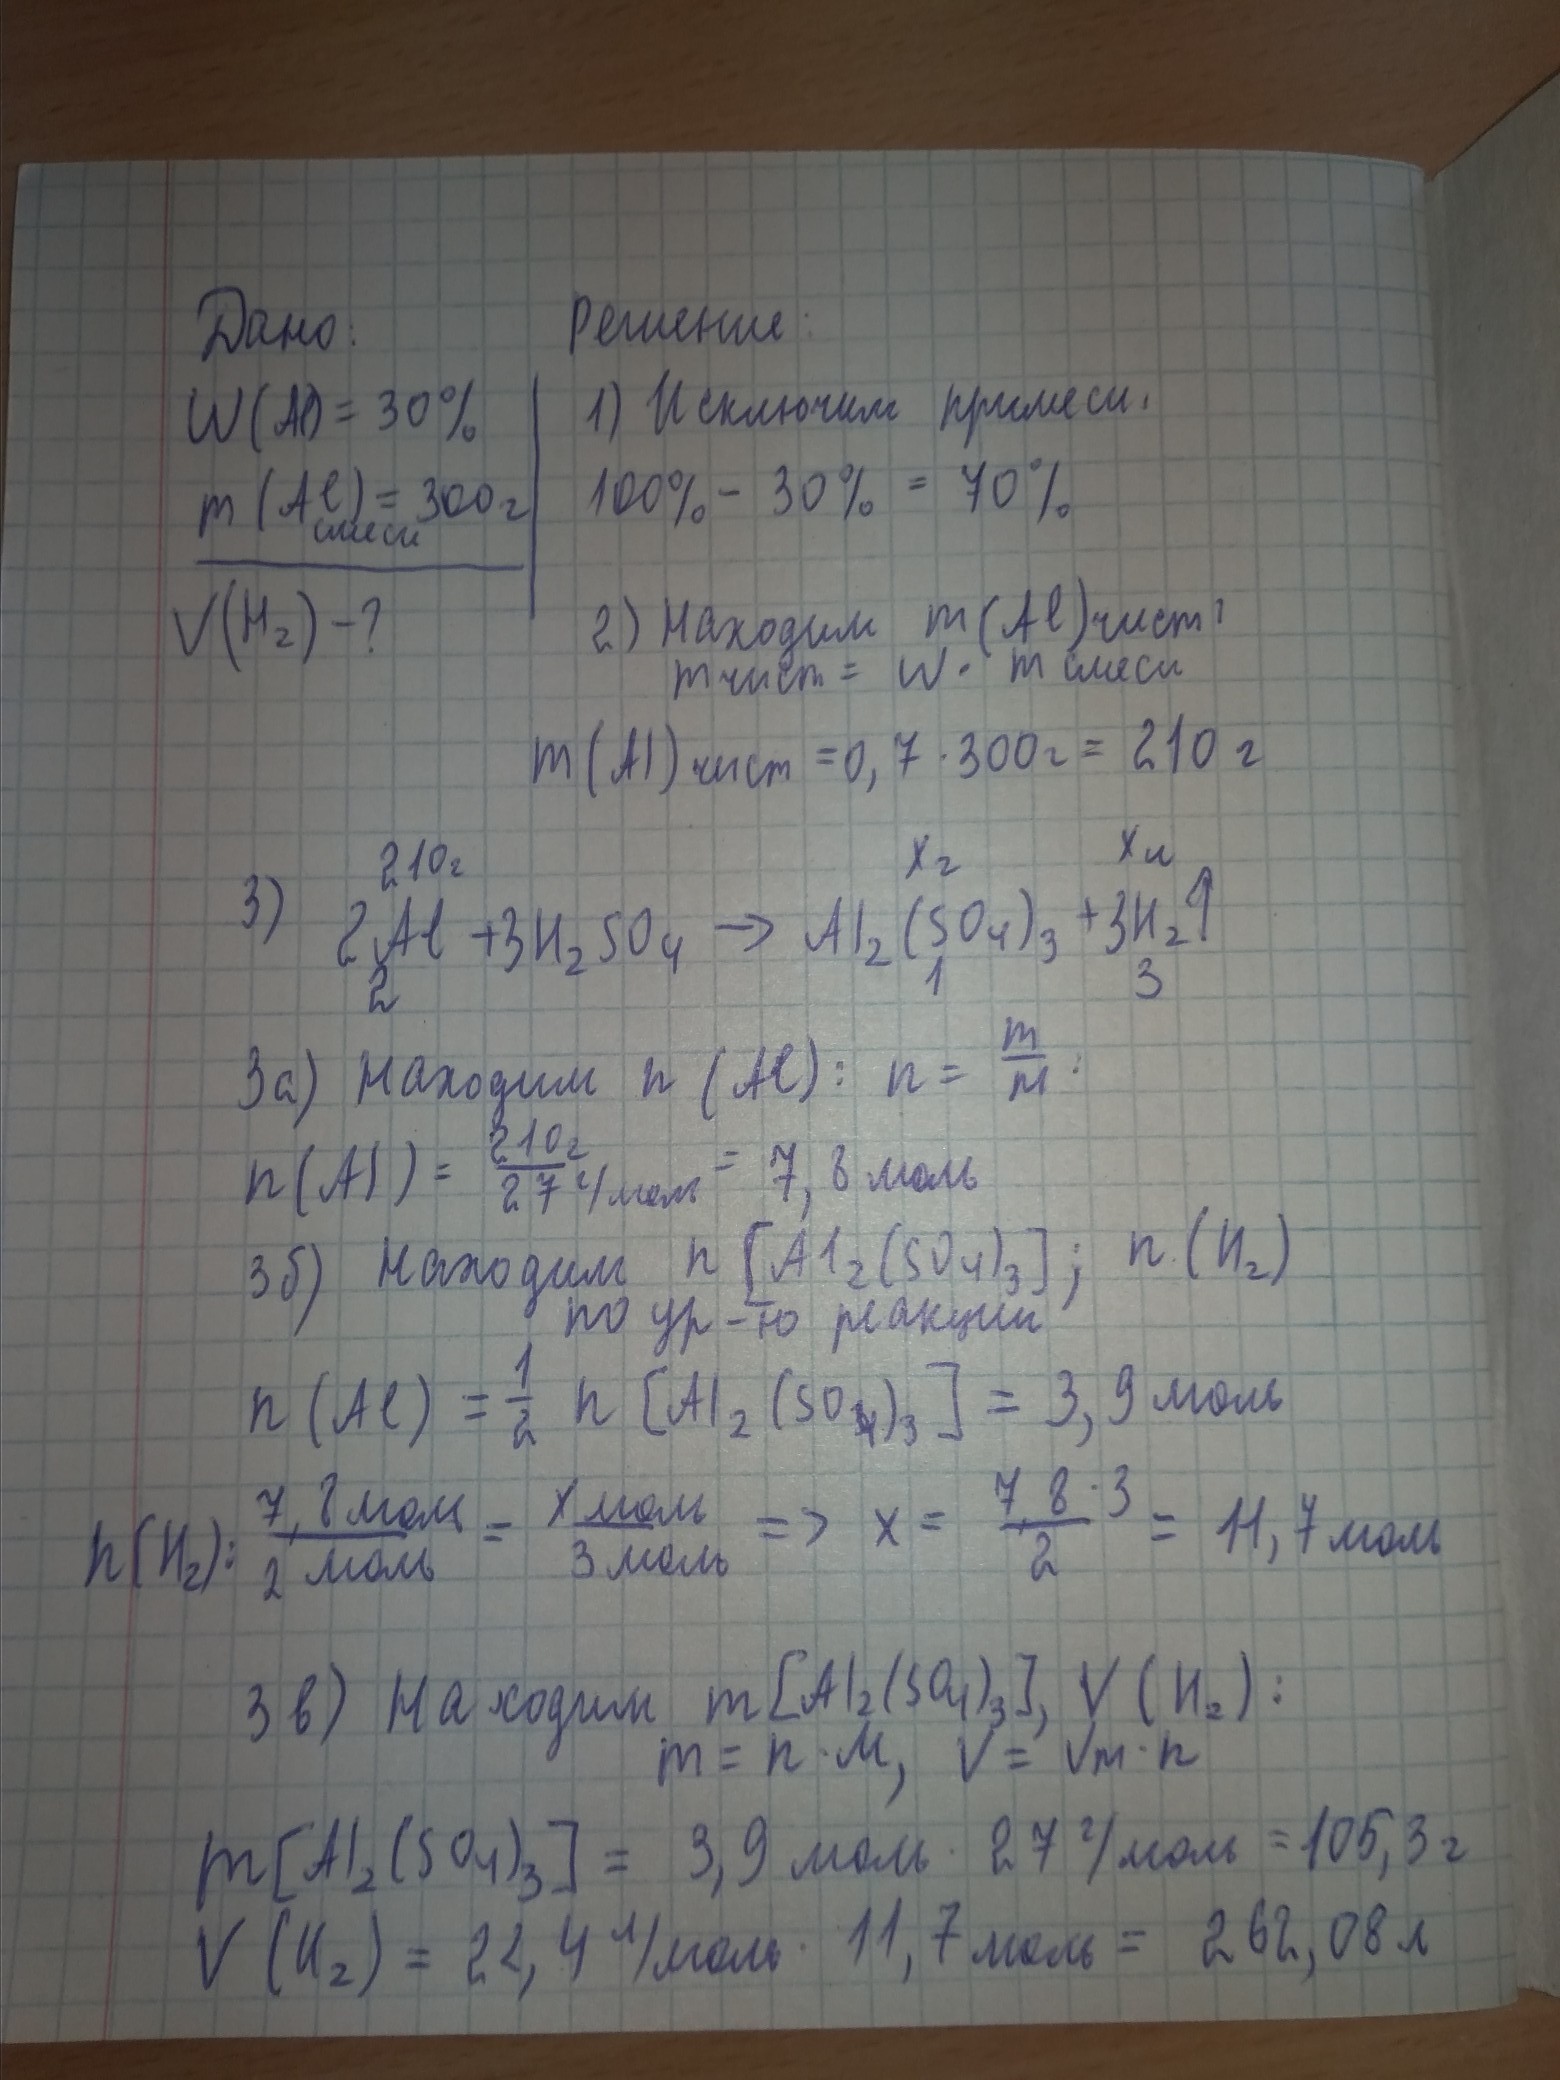 Дано:
Решение:
W(Al) = 30%
1) Исключим примеси.
m(Al) = 300г
смеси
100% - 30% = 70%
V(H₂) - ?
2) Находим m(Al)чист:
mчист = W · m смеси
m(Al)чист = 0,7 · 300г = 210 г
210г xг xл
3) 2Al + 3H₂SO₄ → Al₂(SO₄)₃ + 3H₂↑
2 1 3
3а) Находим n(Al): n = m/M:
n(Al) = 210г/27 г/моль = 7,8 моль
3б) Находим n[Al₂(SO₄)₃]; n(H₂)
по ур-ю реакции
n(Al) = 1/2 n[Al₂(SO₄)₃] = 3,9 моль
n(H₂): 7,8моль/2 моль = x моль/3 моль => x = 7,8·3/2 = 11,7 моль
3в) Находим m[Al₂(SO₄)₃], V(H₂):
m = n·M, V = Vm·n
m[Al₂(SO₄)₃] = 3,9 моль · 27 г/моль = 105,3г
V(H₂) = 22,4 л/моль · 11,7 моль = 262,08 л